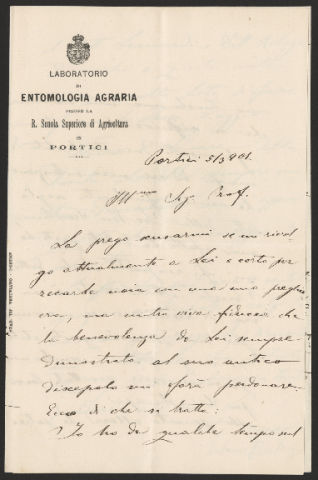 LABORATORIO
DI
ENTOMOLOGIA AGRARIA
PRESSO LA
R. Scuola Superiore di Agricoltura
IN
PORTICI
Portici 5/3 901.
Ill.mo Sig. Prof.
La prego scusarmi se mi rivol-
go attualmente a Lei e certo per
recarle noia con una mia preghie
ra, ma nutro viva fiducia che
la benevolenza da Lei sempre
dimostrata al suo antico
discepolo mi farà perdonare.
Ecco di che si tratta:
Io ho da qualche tempo sul